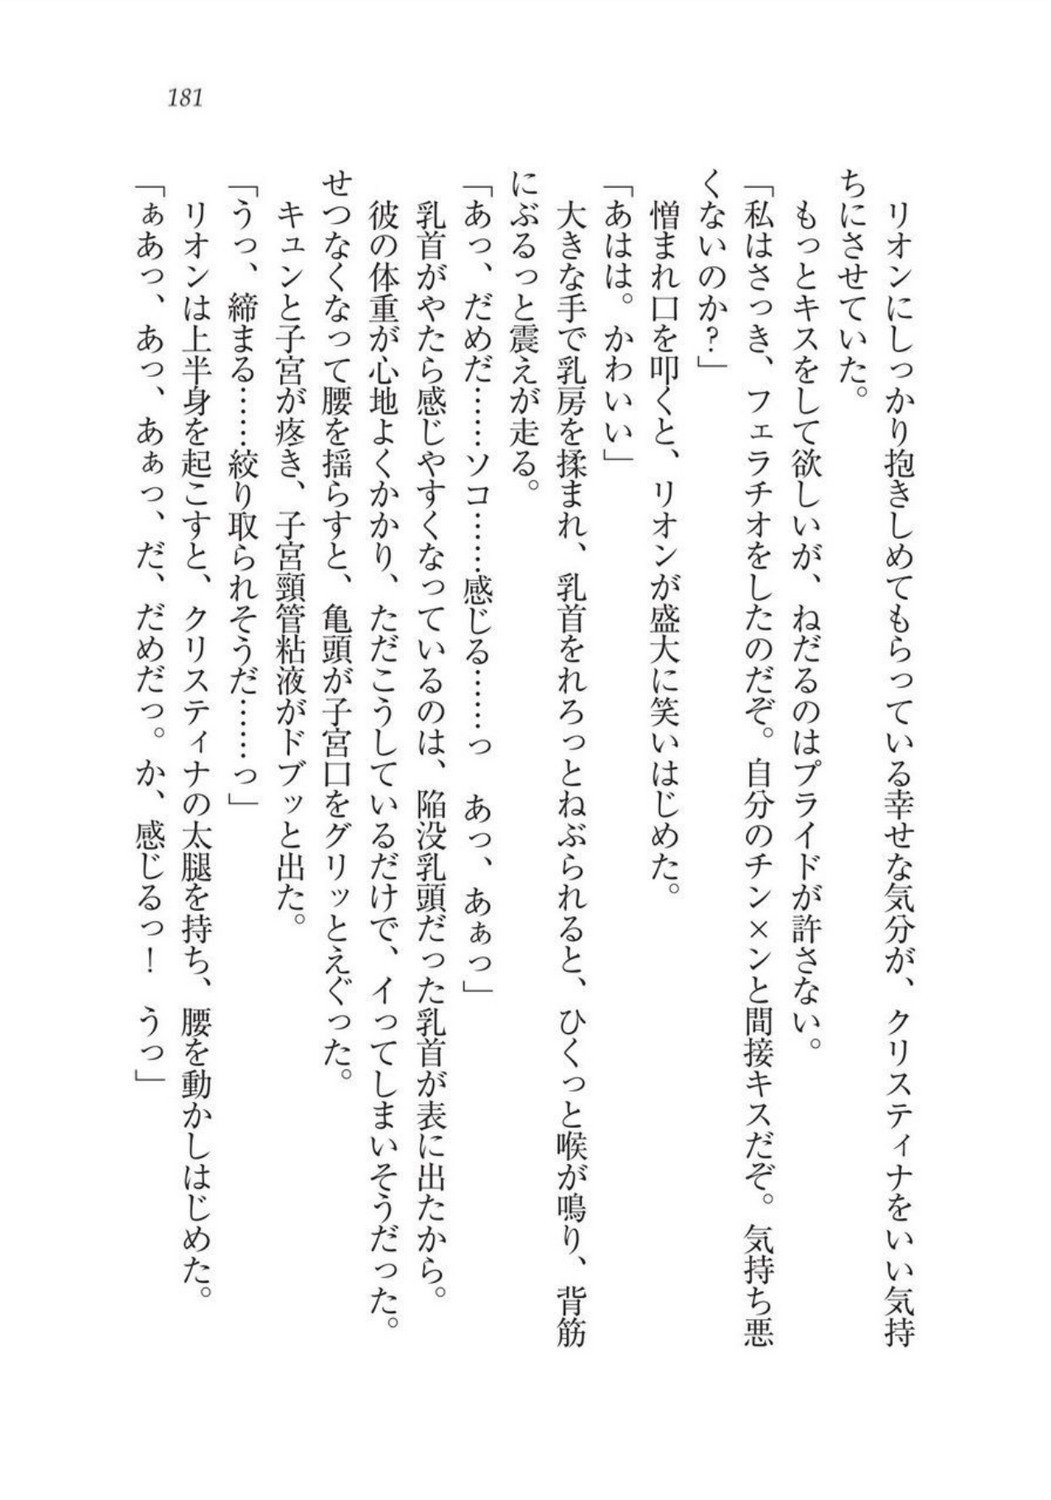 181
リオンにしっかり抱きしめてもらっている幸せな気分が、クリスティナをいい気持
ちにさせていた。
もっとキスをして欲しいが、ねだるのはプライドが許さない。
「私はさっき、フェラチオをしたのだぞ。自分のチン×ンと間接キスだぞ。気持ち悪
くないのか?」
憎まれ口を叩くと、リオンが盛大に笑いはじめた。
「あはは。かわいい」
大きな手で乳房を揉まれ、乳首をれろっとねぶられると、ひくっと喉が鳴り、背筋
にぶるっと震えが走る。
「あっ、だめだ……ソコ……感じる……っ　あっ、あぁっ」
乳首がやたら感じやすくなっているのは、陥没乳頭だった乳首が表に出たから。
彼の体重が心地よくかかり、ただこうしているだけで、イってしまいそうだった。
せつなくなって腰を揺らすと、亀頭が子宮口をグリッとえぐった。
キュンと子宮が疼き、子宮頸管粘液がドブッと出た。
「うっ、締まる……絞り取られそうだ……っ」
リオンは上半身を起こすと、クリスティナの太腿を持ち、腰を動かしはじめた。
「ぁあっ、あっ、あぁっ、だ、だめだっ。か、感じるっ！　うっ」